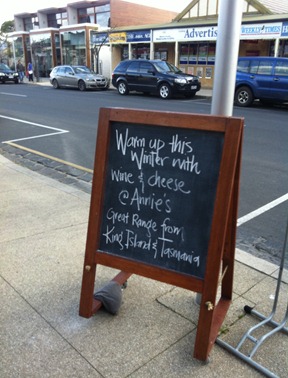 Warm up this
Winter with
Wine & cheese
@ Annie's
Great Range from
King Island & Tasmania
Advertis
WEEKLY TIMES